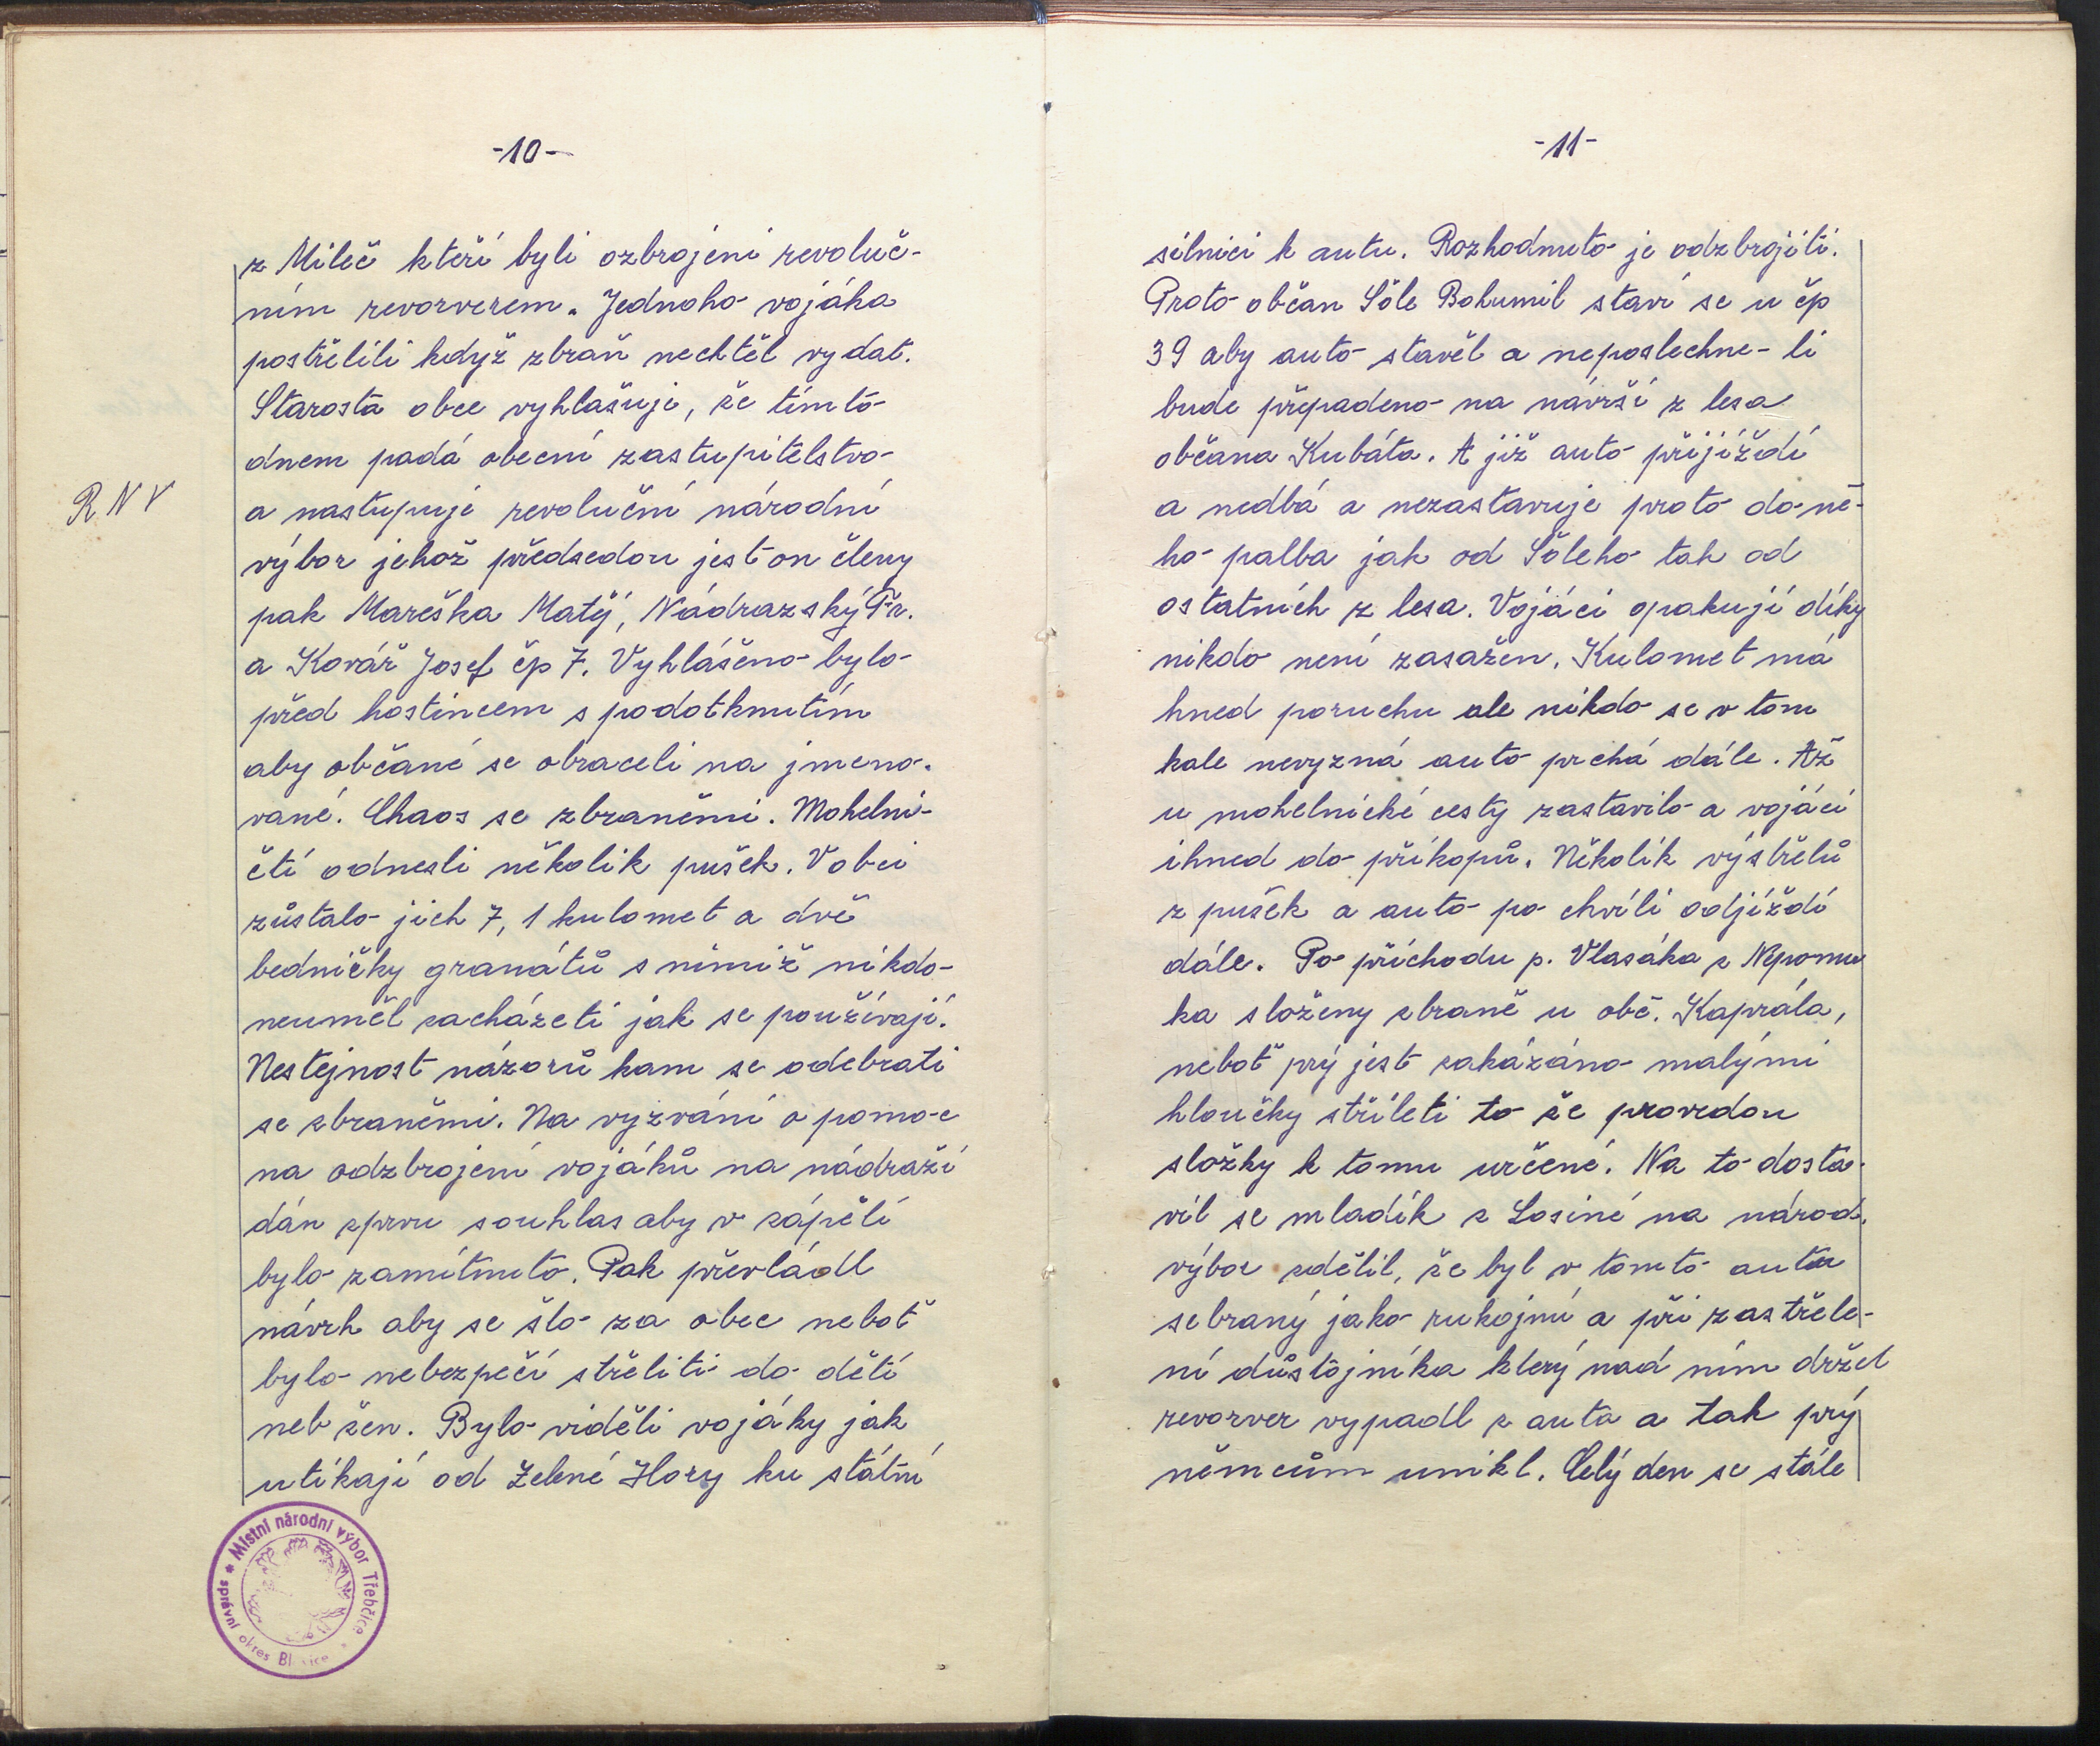 -10-
z Mileč kteří byli ozbrojeni revoluč-
ním revorverem. Jednoho vojáka
postřelili když zbraň nechtěl vydat.
Starosta obce vyhlašuje, že tímto
dnem padá obecní zastupitelstvo
R N V
a nastupuje revoluční národní
výbor jehož předsedou jest on členy
pak Mareška Matěj, Nádrazský Fr.
a Kovář Josef čp 7. Vyhlášeno bylo
před hostincem s podotknutím
aby občané se obraceli na jmeno-
vané. Chaos se zbraněmi. Mohelni-
čtí odnesli několik pušek. V obci
zůstalo jich 7, 1 kulomet a dvě
bedničky granátů s nimiž nikdo
neuměl zacházeti jak se používají.
Nestejnost názorů kam se odebrati
se zbraněmi. Na vyzvání o pomoc
na odzbrojení vojáků na nádraží
dán zprvu souhlas aby v zápětí
bylo zamítnuto. Pak převládl
návrh aby se šlo za obec neboť
bylo nebezpečí střeliti do dětí
neb žen. Bylo viděti vojáky jak
utíkají od Zelené Hory ku státní
* Místní národní výbor Třebčice *
správní okres Bl ice
-11-
silnici k autu. Rozhodnuto je odzbrojiti.
Proto občan Šóle Bohumil staví se u čp
39 aby auto stavěl a neposlechne-li
bude přepadeno na návrší z lesa
občana Kubáta. A již auto přijíždí
a nedbá a nezastavuje proto do ně-
ho palba jak od Šóleho tak od
ostatních z lesa. Vojáci opakují díky
nikdo není zasažen. Kulomet má
hned poruchu ale nikdo se v tom
kale nevyzná auto prchá dále. Až
u mohelnické cesty zastavilo a vojáci
ihned do příkopů. Několik výstřelů
z pušek a auto po chvíli odjíždí
dále. Po příchodu p. Vlasáka z Nepomu
ka složeny zbraně u obč. Kaprála,
neboť prý jest zakázáno malými
hloučky stříleti to že provedou
složky k tomu určené. Na to dosta-
vil se mladík z Losiné na národ.
výbor sdělil, že byl v tomto autu
sebraný jako rukojmí a při zastřele-
ní důstojníka který nad ním držel
revorver vypadl z auta a tak prý
němcům unikl. Celý den se stále